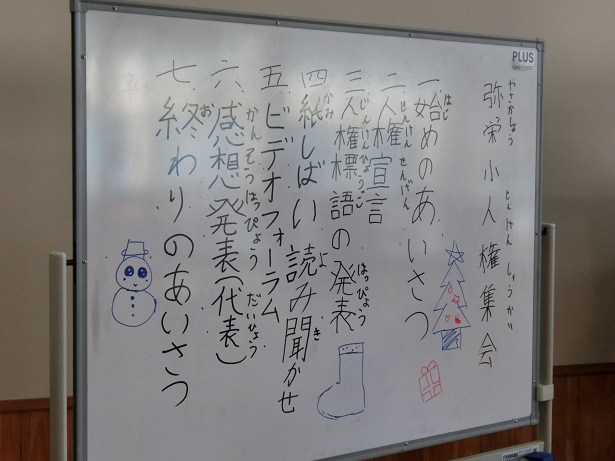 PLUS
弥栄小人権集会
やさかしょう じんけんしゅうかい
一、始めのあいさつ
はじ
二、人権宣言
じんけんせんげん
三、人権標語の発表
じんけんひょうご はっぴょう
四、紙しばい読み聞かせ
かみ よ き
五、ビデオフォーラム
六、感想発表(代表)
かんそうはっぴょう だいひょう
七、終わりのあいさつ
お